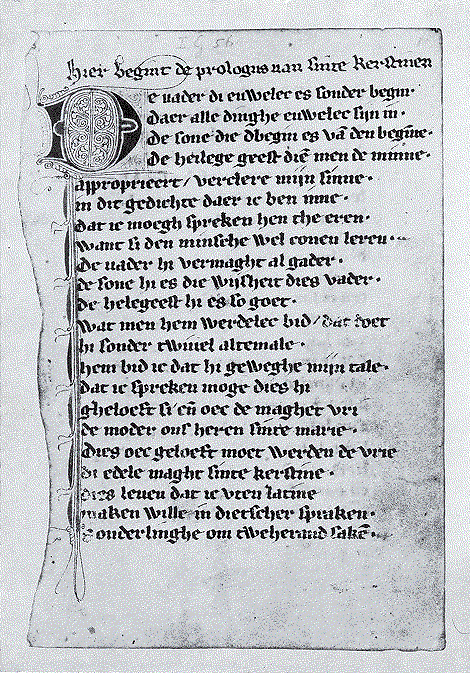 I G 56
Hier begint de prologus van sinte kerstinen
De vader di euwelec es sonder begin·
Daer alle dinghe euwelec sijn in·
De sone die dbegin es vā den beginne·
De heilege geest diē men de minne·
approprieert / verclere mijn sinne·
in dit gedichte daer ic ben inne·
dat ic moegh spreken hen the eren·
want si den minsche wel conen leren·
De vader hi vermaght al gader·
de sone hi es die wijsheit dies vader·
De helegeest hi es so goet·
wat men hem werdelec bid / dat doet
hi sonder twiuel altemale·
hem bid ic dat hi geweghe mijn tale·
dat ic spreken moge dies hi
gheloeft si eñ oec de maghet vri
de moder ons heren sinte marie·
Dies oec geloeft moet werden de vrie
di edele maght sinte kerstine·
dies leuen dat ic vten latine
maken wille in dietscher spraken·
Sonderlinghe om tweherand sakē·